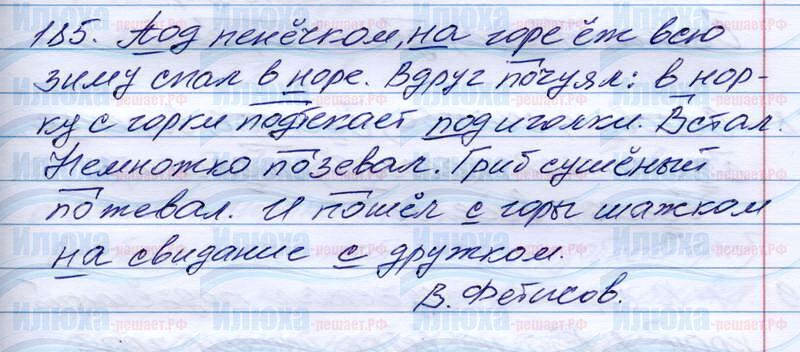 185. Под пенёчком, на горе ёж всю
зиму спал в норе. Вдруг почуял: в нор-
ку с горки подтекает под иголки. Встал.
Немножко позевал. Гриб сушёный
пожевал. И пошёл с горы шажком
на свидание с дружком.
В. Фетисов.